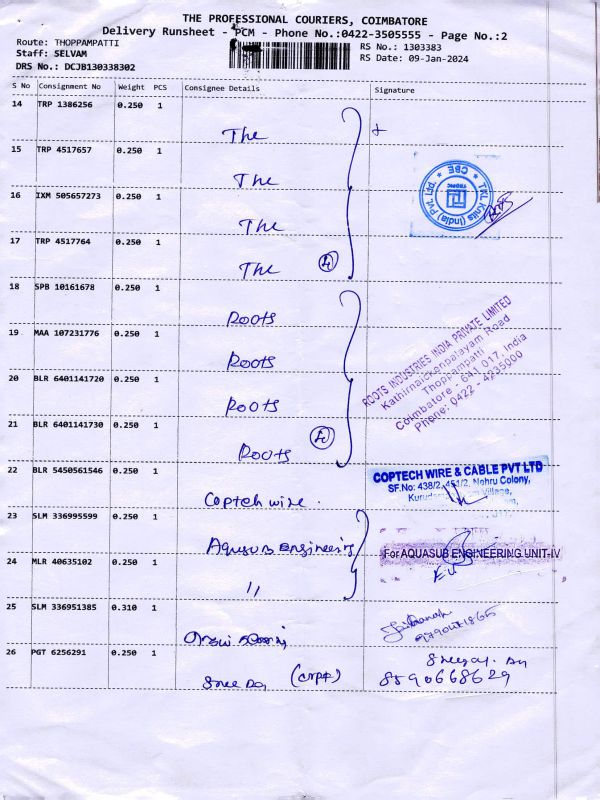 THE PROFESSIONAL COURIERS, COIMBATORE
Delivery Runsheet - PCM - Phone No.:0422-3505555 - Page No.:2
Route: THOPPAMPATTI
Staff: SELVAM
DRS No.: DCJB130338302
RS No.: 1303383
RS Date: 09-Jan-2024
S No Consignment No Weight PCS Consignee Details Signature
14 TRP 1386256 0.250 1
The
15 TRP 4517657 0.250 1
The
16 IXM 505657273 0.250 1
The
17 TRP 4517764 0.250 1
The 4
TKL Knits (India) Pvt Ltd. * CBE *
TROPIC
18 SPB 10161678 0.250 1
Roots
19 MAA 107231776 0.250 1
Roots
20 BLR 6401141720 0.250 1
Roots
21 BLR 6401141730 0.250 1
Roots 4
ROOTS INDUSTRIES INDIA PRIVATE LIMITED
Kathirnaickenpalayam Road
Thoppampatti
Coimbatore - 641 017, India
Phone: 0422 - 4235000
22 BLR 5450561546 0.250 1
Coptech wire.
COPTECH WIRE & CABLE PVT LTD
SF.No: 438/2, 451/2, Nehru Colony,
Village,
23 SLM 336995599 0.250 1
Aquasub Engineering
For AQUASUB ENGINEERING UNIT-IV
24 MLR 40635102 0.250 1
"
25 SLM 336951385 0.310 1
26 PGT 6256291 0.250 1
Sree
8590668629